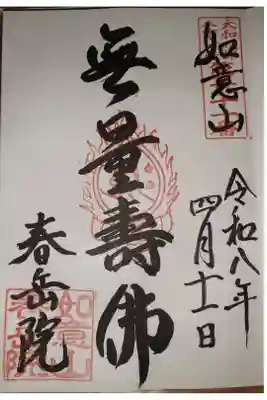 如意山
令和八年
四月十一日
無量壽佛
春岳院
如意山
春岳院